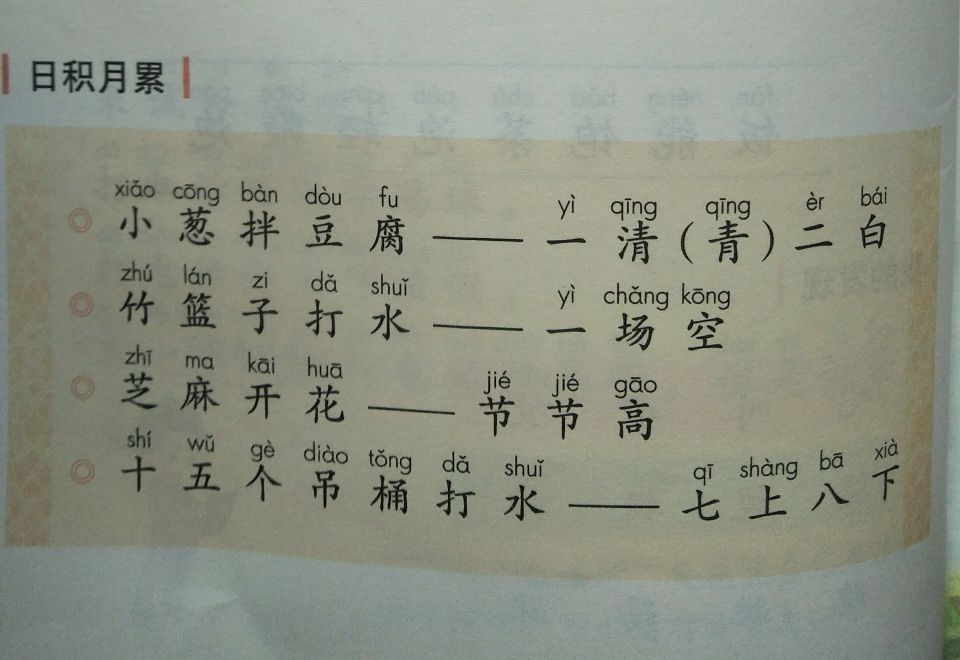 日积月累
xiǎo cōng bàn dòu fu yì qīng qīng èr bái
小葱拌豆腐——一清（青）二白
zhú lán zi dǎ shuǐ yì chǎng kōng
竹篮子打水——一场空
zhī ma kāi huā jié jié gāo
芝麻开花——节节高
shí wǔ gè diào tǒng dǎ shuǐ qī shàng bā xià
十五个吊桶打水——七上八下